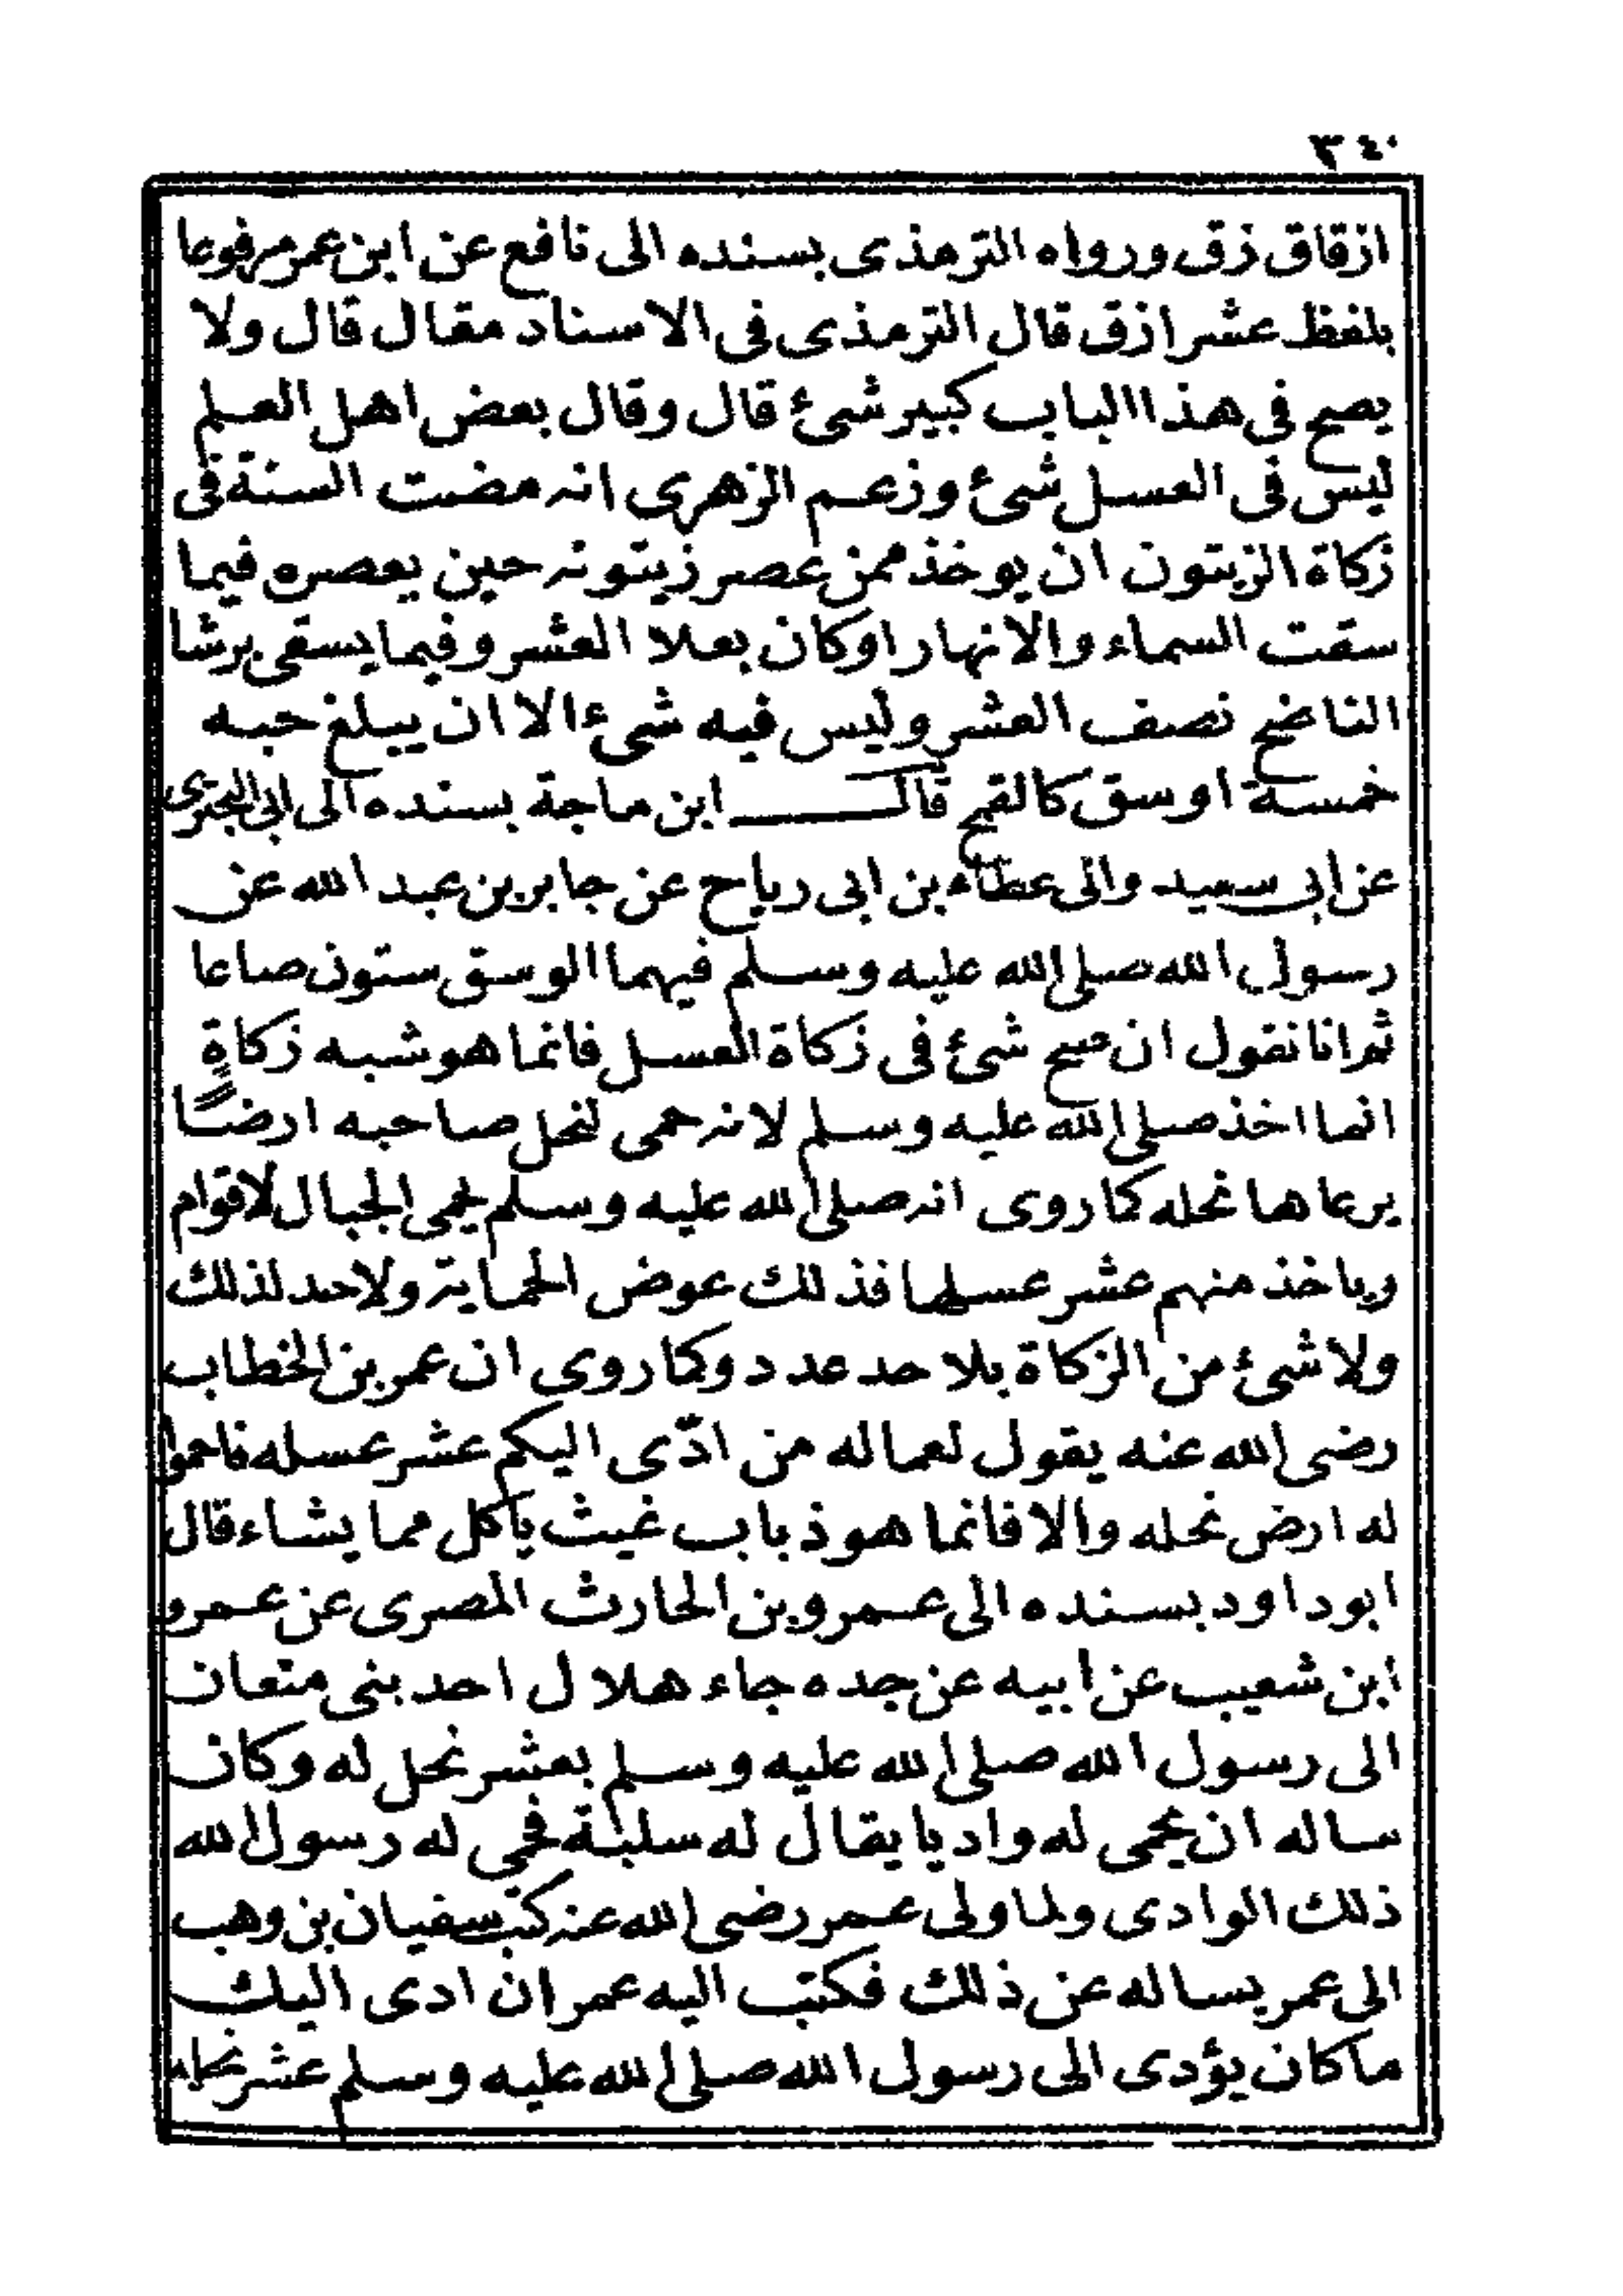 ٣٤٠
ازقاق زق ورواه الترمذى بسنده الى نافع عن ابن عمر مرفوعا
بلفظ عشر ازق قال الترمذى فى الاسناد مقال قال ولا
يصح فى هذا الباب كبير شئ قال وقال بعض اهل العلم
ليس فى العسل شئ وزعم الزهرى انه مضت السنة فى
زكاة الزيتون ان يوخذ ممن عصر زيتونه حين يعصره فيما
سقت السماء والانهار او كان بعلا العشر وفيما يسقى برشا
الناضح نصف العشر وليس فيه شئ الا ان يبلغ حبه
خمسة اوسق كالقمح قال ابن ماجة بسنده الى ابى البحترى
عن ابى سعيد والى عطاء بن ابى رياح عن جابر بن عبد الله عن
رسول الله صلى الله عليه وسلم فيهما الوسق ستون صاعا
ثم انا نقول ان صح شئ فى زكاة العسل فانما هو شبه زكاةٍ
انما اخذ صلى الله عليه وسلم لانه حمى لنحل صاحبه ارضًا
يرعاها نحله كما روى انه صلى الله عليه وسلم يحمى الجبال لاقوام
وياخذ منهم عشر عسلها فذلك عوض الحماية ولا حد لذلك
ولا شئ من الزكاة بلا حد عدد وكما روى ان عمر بن الخطاب
رضى الله عنه يقول لعماله من ادّى اليكم عشر عسله فاحموا
له ارض نحله والا فانما هو ذباب غيث ياكل مما يشاء قال
ابو داود بسنده الى عمرو بن الحارث المصرى عن عمرو
ابن شعيب عن ابيه عن جده جاء هلال احد بنى متعان
الى رسول الله صلى الله عليه وسلم بعشر نحل له وكان
ساله ان يحمى له واديا يقال له سلبة فحمى له رسول الله
ذلك الوادى ولما ولى عمر رضى الله عنه كتب سفيان بن وهب
الى عمر يساله عن ذلك فكتب اليه عمر ان ادى اليك
ما كان يؤدى الى رسول الله صلى الله عليه وسلم عشر نحله